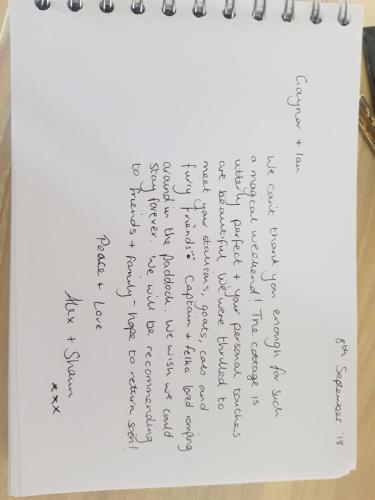 8th September '18
Gaynor + Ian
We can't thank you enough for such
a magical weekend! The cottage is
utterly perfect + your personal touches
are beautiful. We were thrilled to
meet your stallions, goats, cats and
furry friends: Captain + Felka loved romping
around in the paddock. We wish we could
stay forever. We will be recommending
to friends + family - hope to return soon!
Peace + Love
Alex + Shaun
xxx